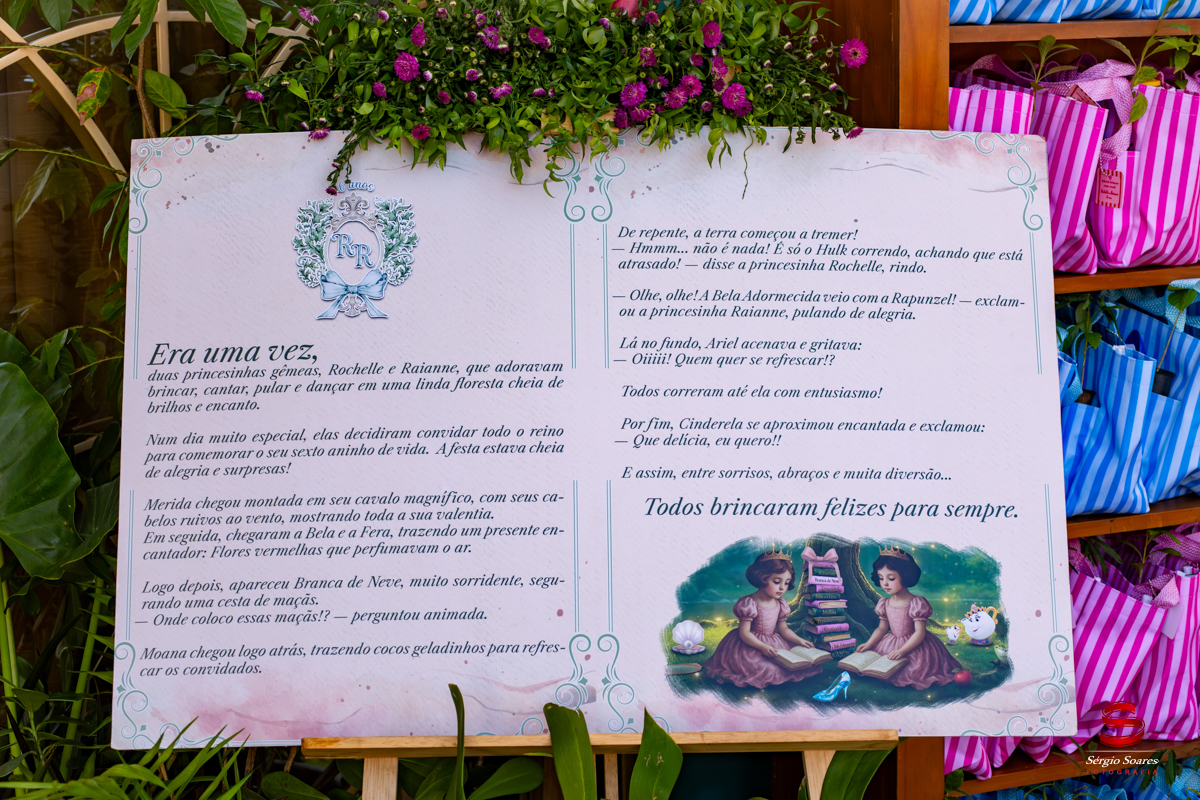 6 anos
RR
Era uma vez,
duas princesinhas gêmeas, Rochelle e Raianne, que adoravam
brincar, cantar, pular e dançar em uma linda floresta cheia de
brilhos e encanto.
Num dia muito especial, elas decidiram convidar todo o reino
para comemorar o seu sexto aninho de vida. A festa estava cheia
de alegria e surpresas!
Merida chegou montada em seu cavalo magnífico, com seus ca-
belos ruivos ao vento, mostrando toda a sua valentia.
Em seguida, chegaram a Bela e a Fera, trazendo um presente en-
cantador: Flores vermelhas que perfumavam o ar.
Logo depois, apareceu Branca de Neve, muito sorridente, segu-
rando uma cesta de maçãs.
— Onde coloco essas maçãs!? — perguntou animada.
Moana chegou logo atrás, trazendo cocos geladinhos para refres-
car os convidados.
De repente, a terra começou a tremer!
— Hmmm... não é nada! É só o Hulk correndo, achando que está
atrasado! — disse a princesinha Rochelle, rindo.
— Olhe, olhe! A Bela Adormecida veio com a Rapunzel! — exclam-
ou a princesinha Raianne, pulando de alegria.
Lá no fundo, Ariel acenava e gritava:
— Oiiiii! Quem quer se refrescar!?
Todos correram até ela com entusiasmo!
Por fim, Cinderela se aproximou encantada e exclamou:
— Que delícia, eu quero!!
E assim, entre sorrisos, abraços e muita diversão...
Todos brincaram felizes para sempre.
Branca de Neve
Sérgio Soares
FOTOGRAFIA